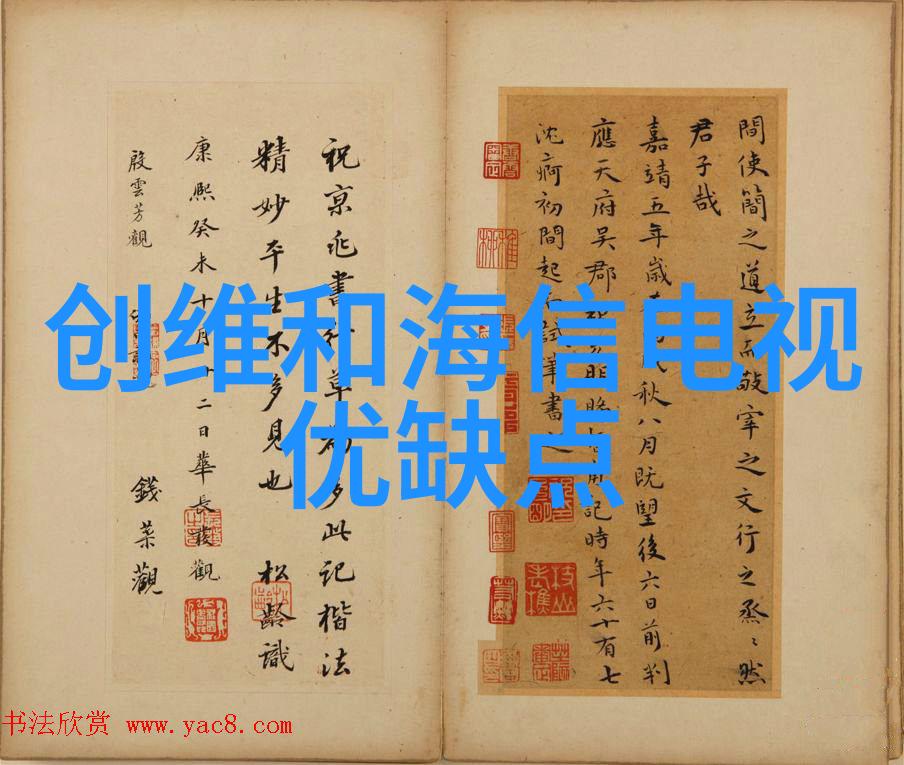 創维和海信电视
优缺点
間使簡之道立而敲宰之文行之烝〻然
君子哉
嘉靖五年歲秋八月既朢後六日前判
應天府吳郡記時年六十有七
沈痾初間起試筆書
祝京兆書行草為多此記楷法
精妙平生不多見也 松齡識
康熙癸未十月十二日華長發觀
殷雲芳觀
錢菜觀
书法欣赏 www.yac8.com